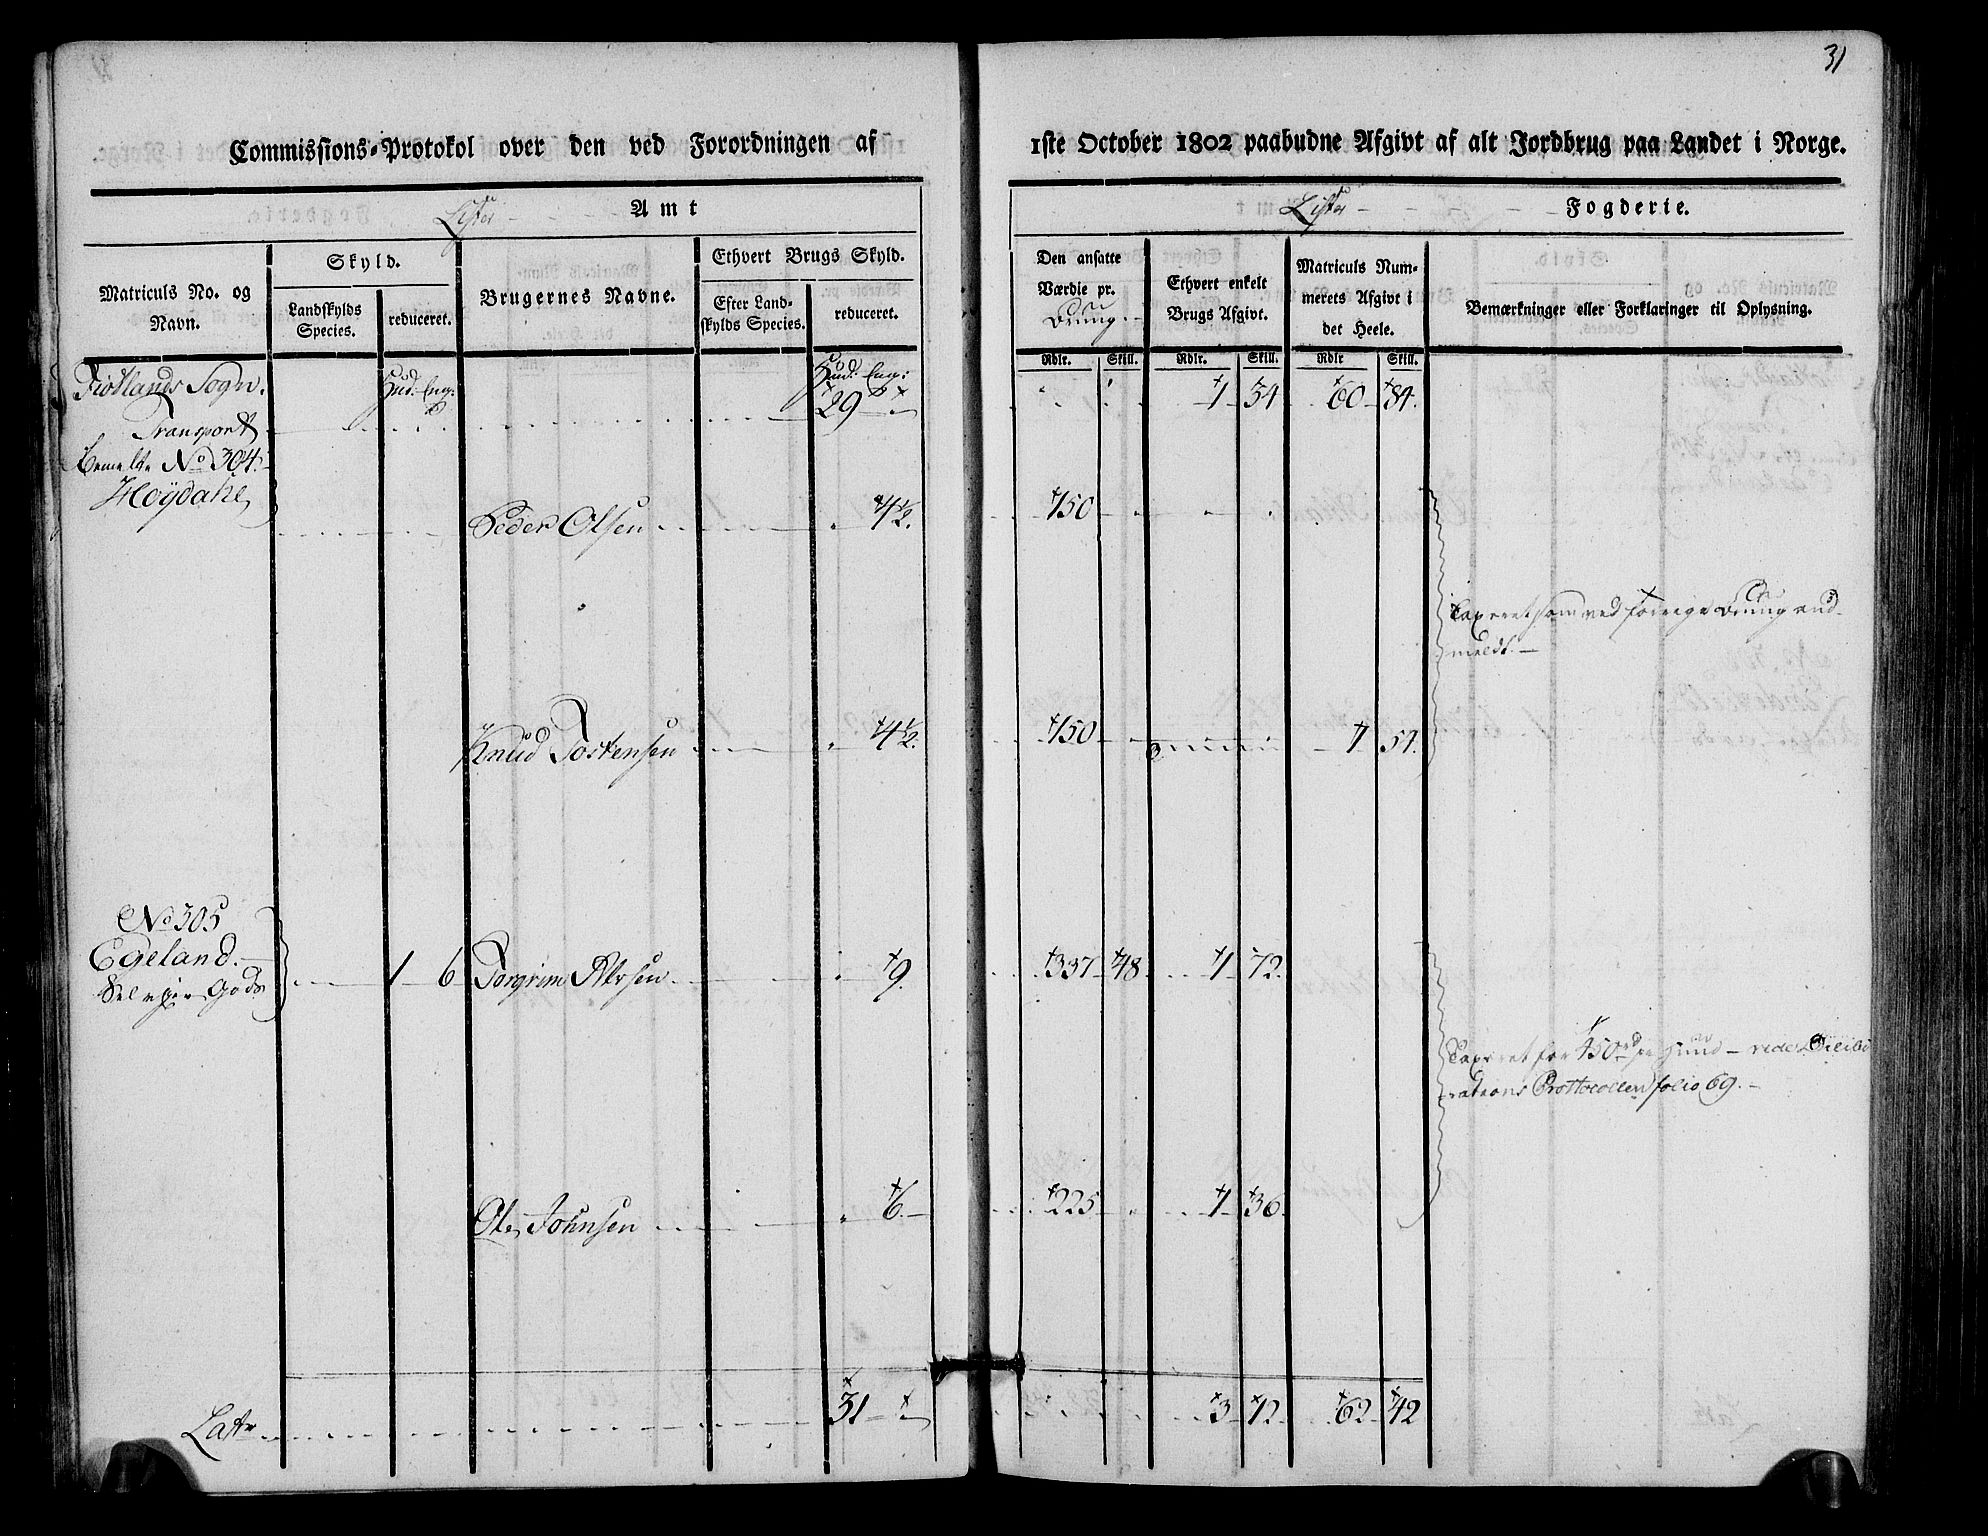 31
Commissions-Protokol over den ved Forordningen af 1ste October 1802 paabudne Afgivt af alt Jordbrug paa Landet i Norge.
Lister Amt
Lister Fogderie.
Matriculs No. og Navn.
Skyld.
Landskylds Species.
reduceret.
Brugernes Navne.
Ethvert Brugs Skyld.
Efter Landskylds Species.
reduceret.
Den ansatte Værdie pr.
Ethvert enkelt Brugs Afgivt.
Matriculs Nummerets Afgivt i det Heele.
Bemærkninger eller Forklaringer til Oplysning.
Rdlr. Skill. Rdlr. Skill. Rdlr Skill.
Fiotlands Sogn. Hud: Eng: Hud: Eng:
Transport 29 1 34 60 84.
Bemelte No 304.
Høÿdahl Peder Olsen 4½. 150
Taxeret som ved forrige anmeldt.
Knud Torkensen 4½. 150 1 54.
No 305
Egeland. 1 6 Torgrim 9. 337 48 1 72.
Gods
Taxeret for 450 rd pr Hud - vide Delibe
rations Prottocollen folio 69.
Ole Johnsen 6. 225 1 36.
Latr 31 3 12 62 42